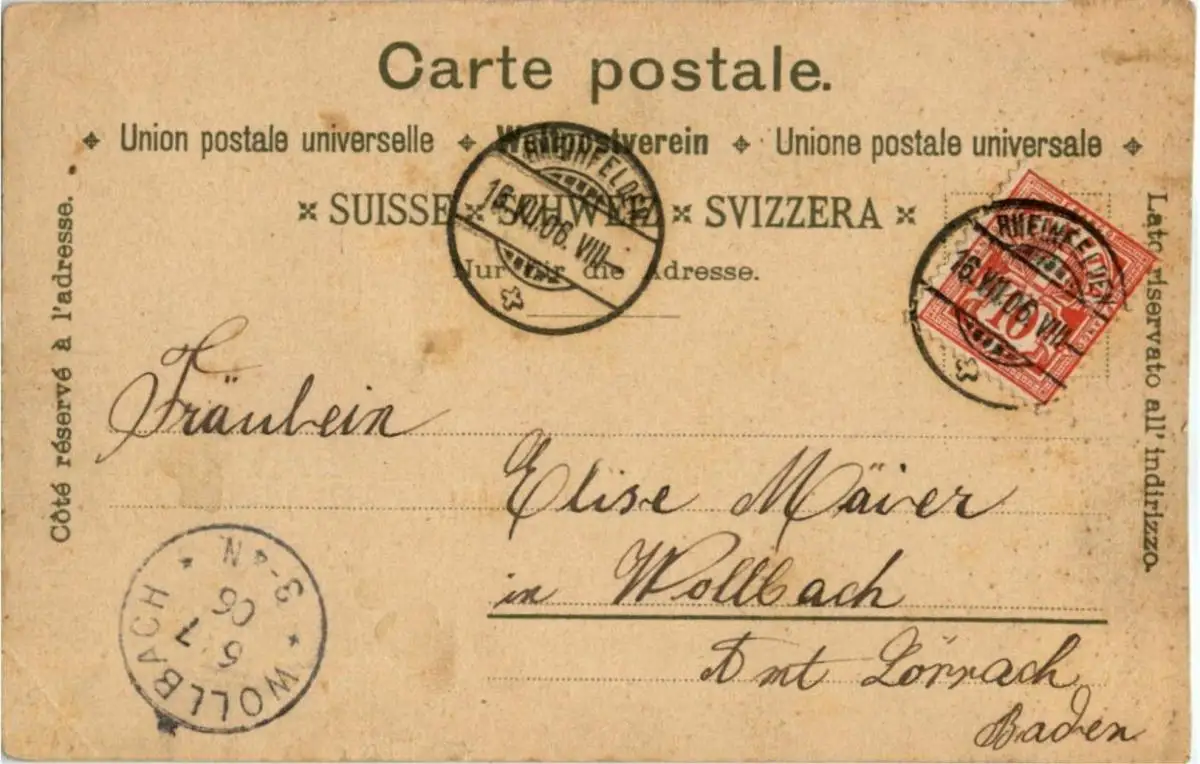 Carte postale.
Union postale universelle Weltpostverein Unione postale universale
SUISSE SCHWEIZ SVIZZERA
Nur für die Adresse.
Côté réservé à l'adresse.
Lato riservato all'indirizzo.
RHEINFELDEN
16.VII.06.VIII
RHEINFELDEN
16.VII.06.VIII
10
Fräulein
Elise Mäier
in Wollbach
Amt Lörrach
Baden
WOLLBACH
7
06
3-4 N